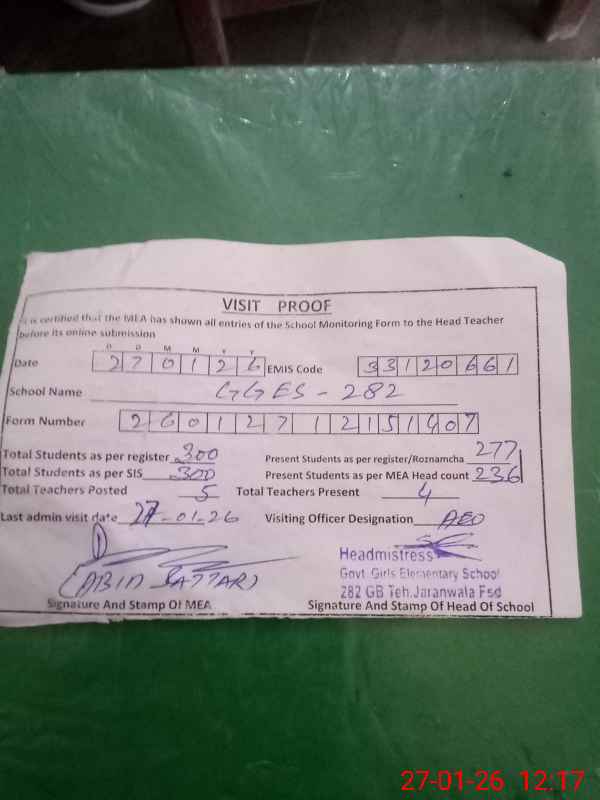 VISIT PROOF
It is certified that the MEA has shown all entries of the School Monitoring Form to the Head Teacher
before its online submission
D D M M Y Y
Date 270126 EMIS Code 33120661
School Name GGES - 282
Form Number 260127121507
Total Students as per register 300 Present Students as per register/Roznamcha 277
Total Students as per SIS 300 Present Students as per MEA Head count 236
Total Teachers Posted 5 Total Teachers Present 4
Last admin visit date 27-01-26 Visiting Officer Designation AEO
(ABID SATTAR) Headmistress
Govt Girls Elementary School
282 GB Teh.Jaranwala Fsd
Signature And Stamp Of MEA Signature And Stamp Of Head Of School
27-01-26 12:17